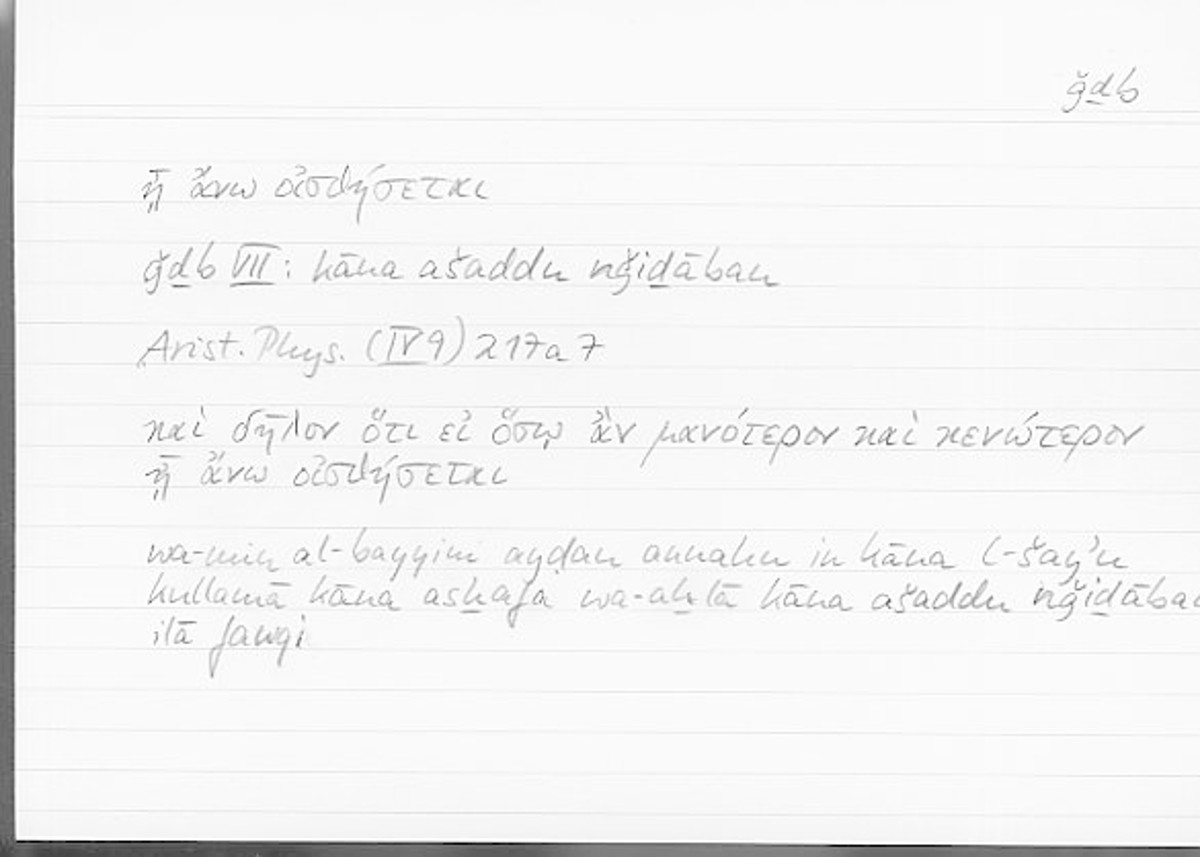 ǧḏb
ᾗ ἄνω οἰσθήσεται
ǧḏb VII: kāna ašaddu nǧiḏāban
Arist. Phys. (IV 9) 217a7
καὶ δῆλον ὅτι εἰ ὅσῳ ἂν μανότερον καὶ κενώτερον
ᾗ ἄνω οἰσθήσεται
wa-min al-bayyini ayḍan annahu in kāna l-šay'u
kullamā kāna asḫafa wa-aḫlā kāna ašaddu nǧiḏāban
ilā fawqi